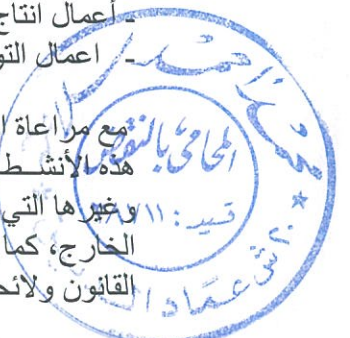 ـ أعمال انتاج
ـ اعمال التو
مع مراعاة ا
هذه الأنشط
وغيرها التي
الخارج، كما
القانون ولائح
احمد
المحامي بالنقض
قيد :
ش عماد ال